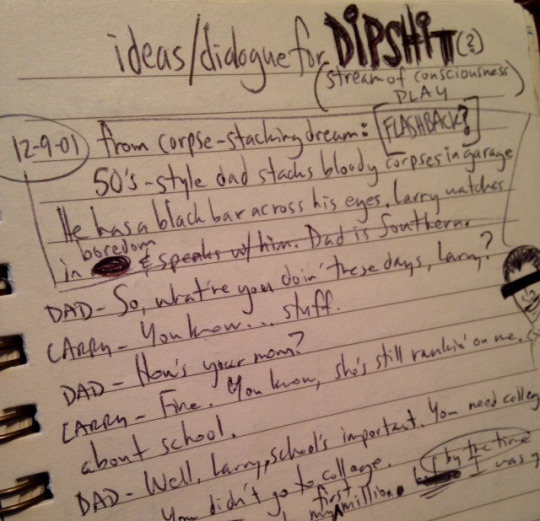 ideas/dialogue for DIPSHIT (?)
(stream of consciousness PLAY)
12-9-01 from corpse-stacking dream: [FLASHBACK?]
50's-style dad stacks bloody corpses in garage
He has a black bar across his eyes. Larry watches
in boredom & speaks w/ him. Dad is Southern.
DAD - So, what're you doin' these days, Larry?
LARRY - You know... stuff.
DAD - How's your mom?
LARRY - Fine. You know, she's still rankin' on me.
about school.
DAD - Well, Larry, school's important. You need colleg
You didn't go to college.
my first million. by the time I was